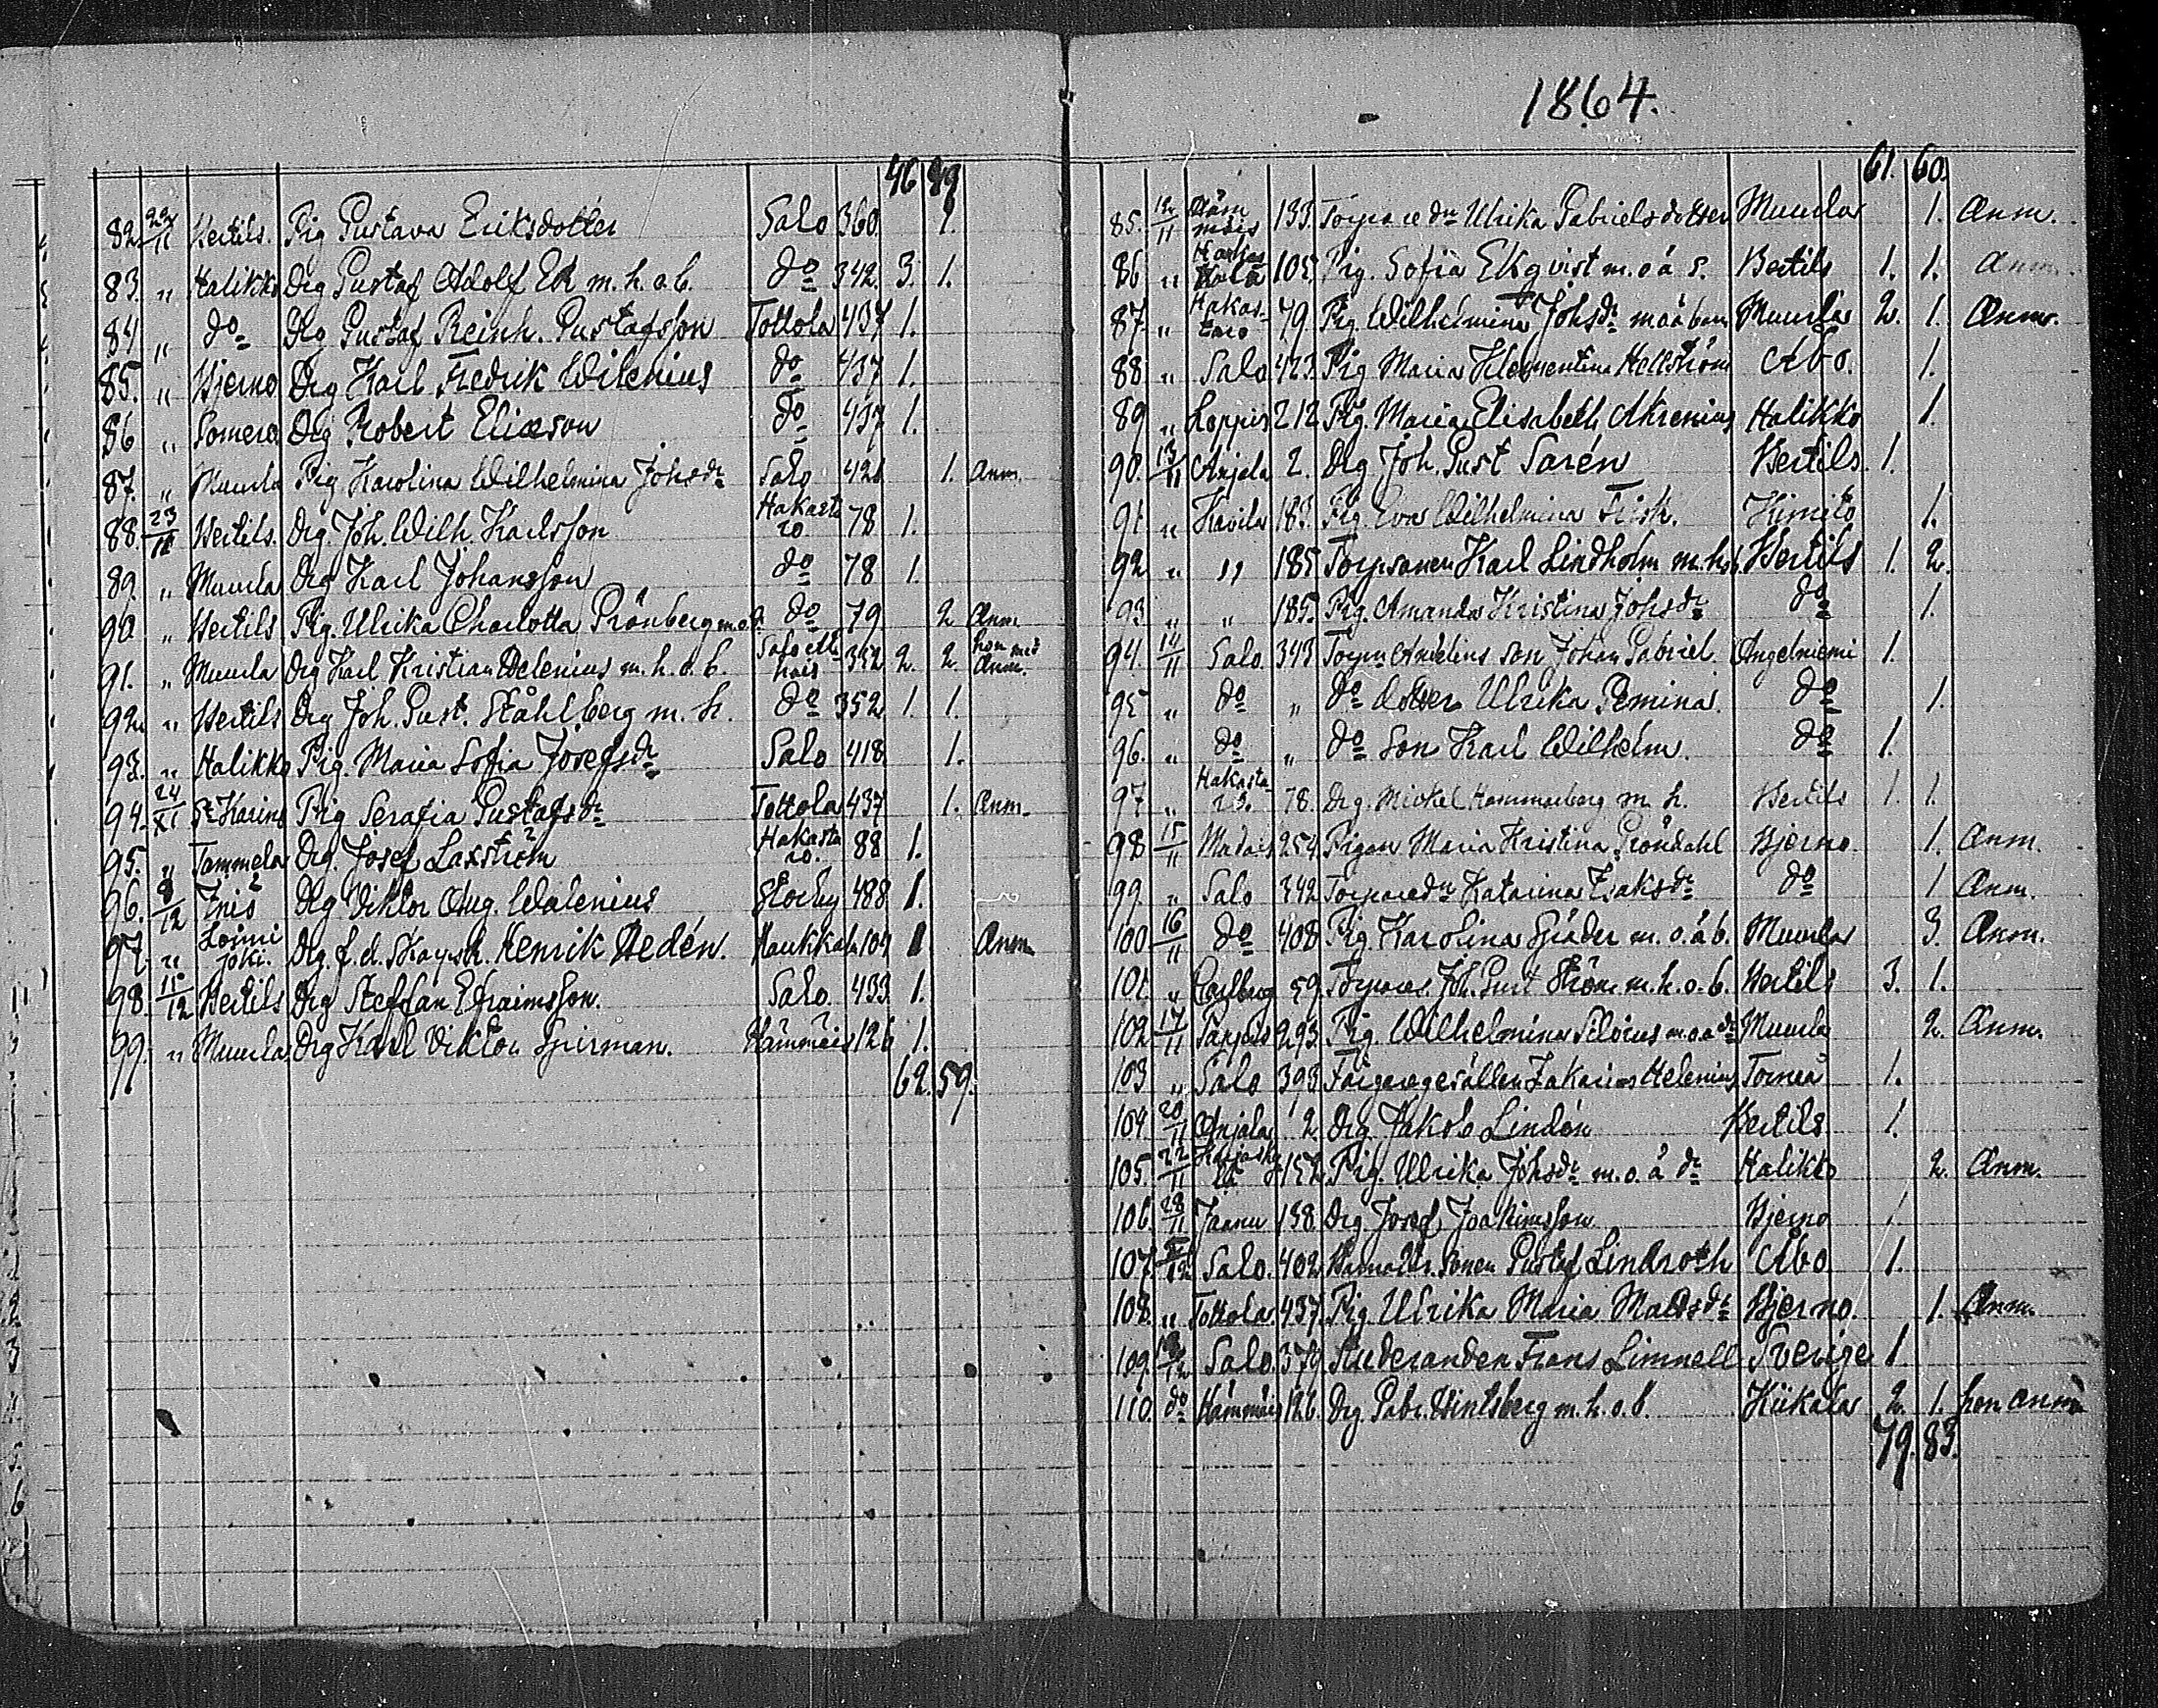 46 49
82. 22/11 Bertils. Pig Gustava Eriksdotter Salo 360. 1.
83. " Halikko Drg Gustaf Adolf Ek m. h. o. b. do 342. 3. 1.
84 " do Drg Gustaf Reinh. Gustafsson Tottola 437 1.
85. " Bjerno Drg Karl Fredrik Wilenius do 437 1.
86 " Somero Drg Robert Eliæson do 437 1.
87. " Muurla Pig Karolina Wilhelmina Johsdr Salo 421 1. Anm.
88. 23/11 Bertils. Drg. Joh. Wilh. Karlsson Hakasta ro 78 1.
89. " Muurla Drg Karl Johansson do 78 1.
90 " Bertils Pig. Ulrika Charlotta Grönberg m. o. do 79 2 Anm
91. " Muurla Drg Karl Kristian Helenius m. h. o. b. Salo 352 2. 2. hon med Anm.
92. " Bertils Drg Joh. Gust. Ståhlberg m. h. do 352 1. 1.
93. " Halikko Pig. Maria Sofia Josefsdr Salo 418. 1.
94. 24/XI St Karins Pig Serafia Gustafsdr Tottola 437 1. Anm.
95. " Tammela Drg. Josef Laxström Hakasta ro. 88 1.
96. 8/12 Drg Viktor Aug. Walenius 488 1.
97. " Loimi joki. Drg. f. d. Henrik Hedén. Haukkala 109 1 Anm
98. 11/12 Bertils Drg Steffan Efraimsson. Salo. 433 1.
99. " Muurla. Drg Karl Viktor Spirman. Hämmäis 126 1.
62. 59.
1864.
61. 60.
85. 12/11 Häm mäis 133. Torpare dr Ulrika Gabrielsdotter Muurla 1. Anm.
86 " 105. Pig. Sofia Ekqvist m. o ä s. Bertils 1. 1. Anm.
87. " Hakas- taro 79. Pig. Wilhelmina Johsdr m o ä barn Muurla 2. 1. Anm.
88 " Salo 423. Pig. Maria Klementina Hellström Åbo. 1.
89 " Loppis 212. Pig. Maria Elisabeth Akrenius Halikko 1.
90. 13/11 Anjela 2. Drg Joh. Gust Sarén Bertils. 1.
91 " Kavila 185. Pig. Eva Wilhelmina Fisk. Kimito 1.
92 " " 185 Torp. sonen Karl Lindholm m. h. o b Bertils 1. 2.
93 " " 185. Pig. Amanda Kristina Johsdr do 1.
94. 14/11 Salo. 343. Torpn Andelins son Johan Gabriel. Angelniemi 1.
95 " do " do dotter Ulrika Gemina. do 1.
96. " do " do son Karl Wilhelm. do 1.
97 " Hakasta ro. 78. Drg. Mickel Hammarberg m. h. Bertils 1. 1.
98 15/11 Madais 254 Pigan Maria Kristina Gröndahl Bjerno. 1. Anm.
99. " Salo 342 Torparedr Katarina Isaksdr do 1 Anm.
100 16/11 do 408 Pig. Karolina m. o. ä b. Muurla 3. Anm.
101. " 59. Torpares. Joh. Gust Ström m. h. o. b. Bertils 3. 1.
102 17/11 293. Pig. Wilhelmina m. o. ä dr Muurla 2. Anm.
103 " Salo 393 Färgaregesällen Zakarias Helenius Torneå 1.
104 20/11 Anjala 2. Drg. Jakob Lindén Bertils 1.
105. 22/11 152 Pig. Ulrika Johsdr m. o. ä dr Halikko 2. Anm.
106. 28/11 Jaanu 138 Drg Josef Joakimsson Bjerno 1
107. Salo. 402 Gustaf Lindroth Åbo 1.
108. " Tottola. 437. Pig Ulrika Maria Madsdr Bjerno. 1. Anm.
109. Salo. 379 Studeranden Frans Limnell Sverige 1
110. do Hämmäis 126. Drg. Gabr. Hintsberg m. h. o. b. Kiikala 2. 1. hon anm
79. 83.